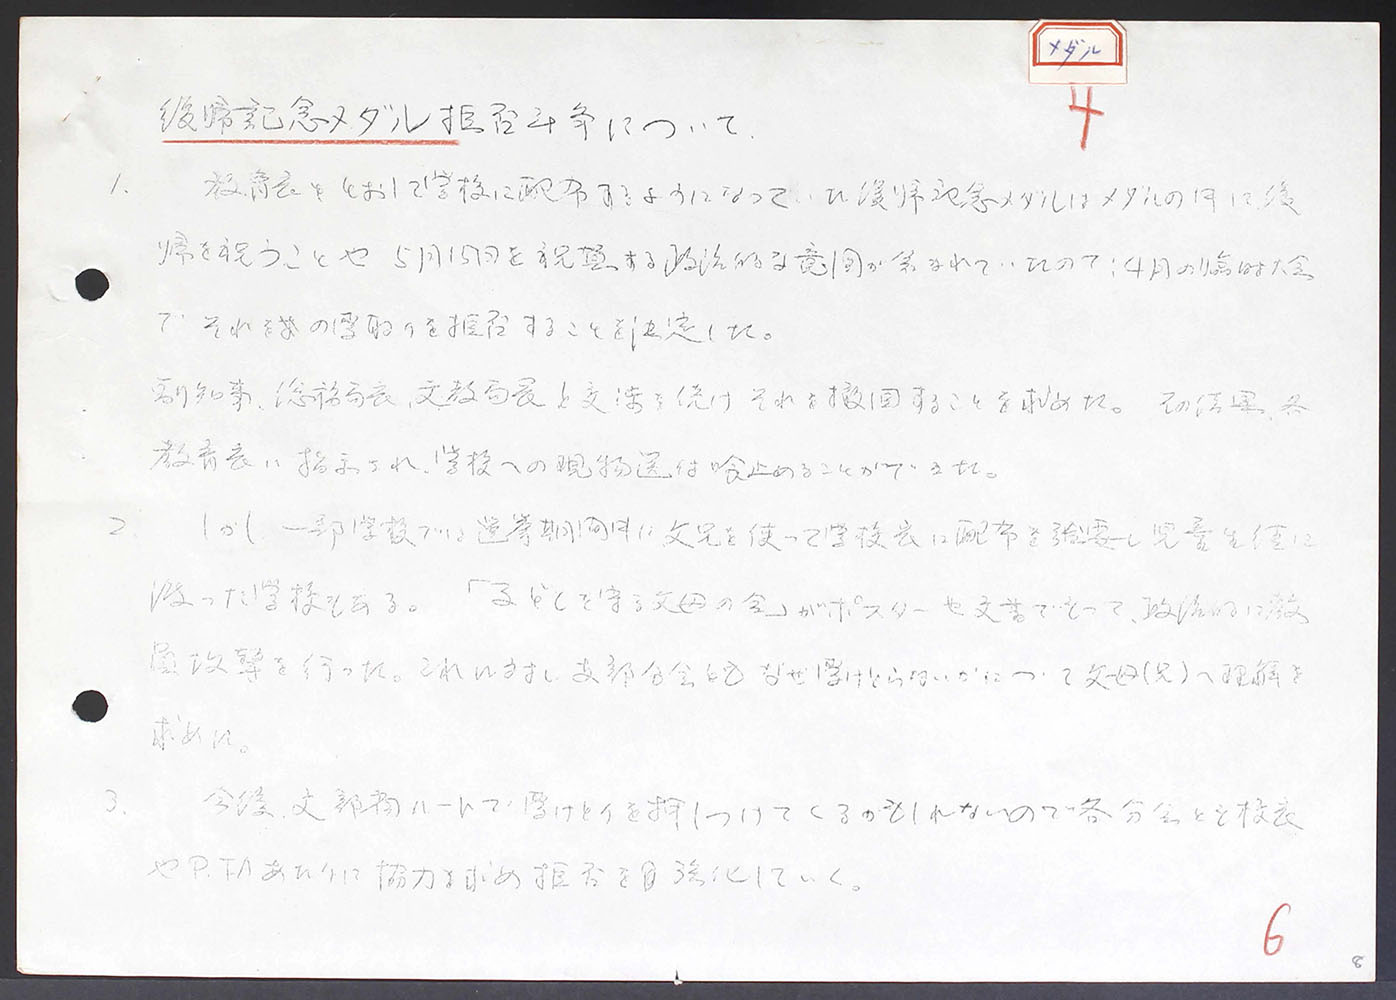 メダル
4
復帰記念メダル拒否斗争について.
1. 教育長をとおして学校に配布するようになっていた復帰記念メダルはメダルの中に、復
帰を祝うことや5月15日を祝賀する政治的な意図が含まれていたので、4月の臨時大会
で それを 受取りを拒否することを決定した。
副知事、総務局長、文教局長と交渉を続けそれを撤回することを求めた。 その結果、各
教育長に指示され、学校への現物送付は喰止めることができた。
2. しかし 一部学校では選挙期間中に父兄を使って学校長に配布を強要し児童生徒に
渡った学校もある。 「子どもを守る父母の会」がポスターや文書でもって、政治的に教
員攻撃を行った。これに対し支部分会とも なぜ受けとらないかについて父母(兄)へ理解を
求めた。
3. 今後、文部省ルートで受けとりを押しつけてくるかもしれないので各分会とも校長
やP.TAあたりに協力を求め拒否を 強化していく。
6
8